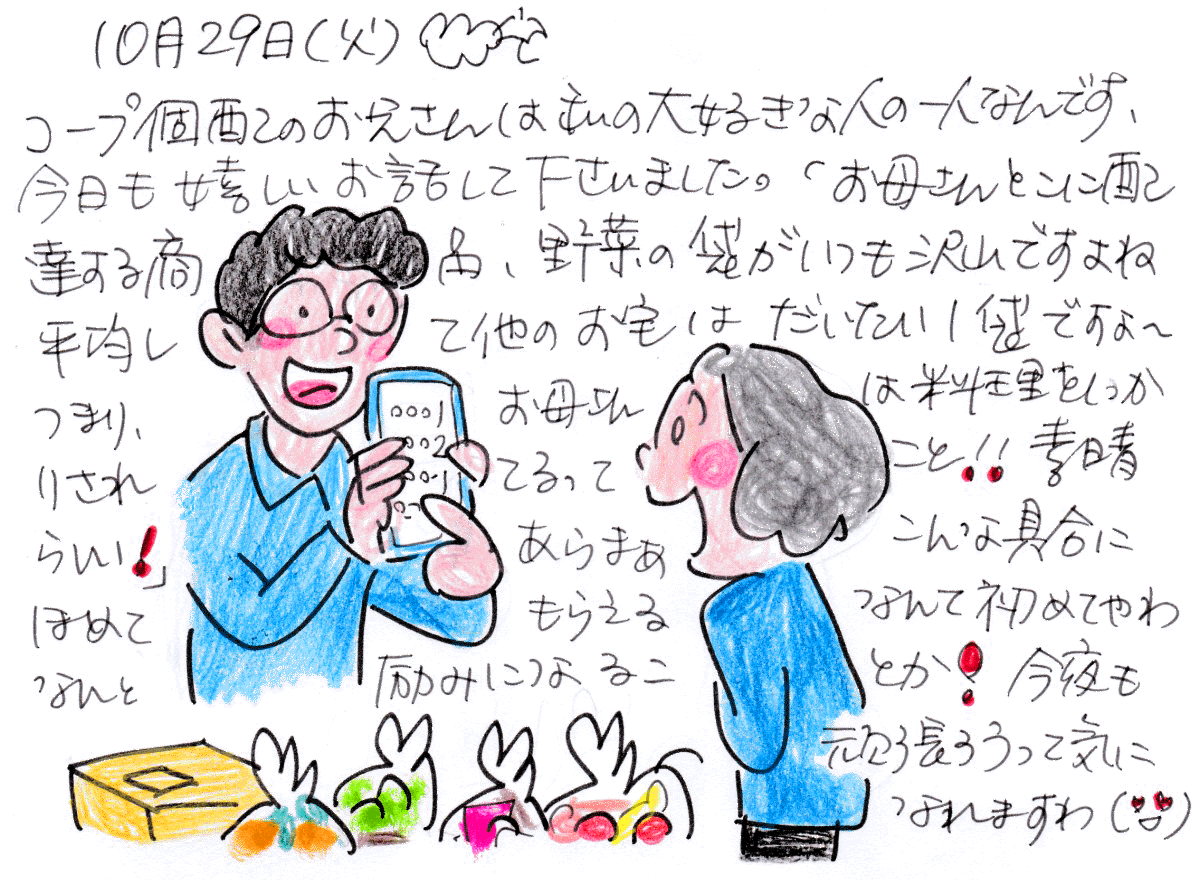 10月29日(火)
コープ個配のお兄さんは私の大好きな人の一人なんです、
今日も嬉しいお話して下さいました。「お母さんとこに配
達する商品、野菜の袋がいつも沢山ですよね
平均して他のお宅はだいたい1袋ですよ〜
つまり、お母さんは料理をしっか
りされてるってこと!!素晴
らしい!」あらまぁこんな具合に
ほめてもらえるなんて初めてやわ
なんと励みになることか!今夜も
頑張ろうって気に
なれますわ(
0001
002